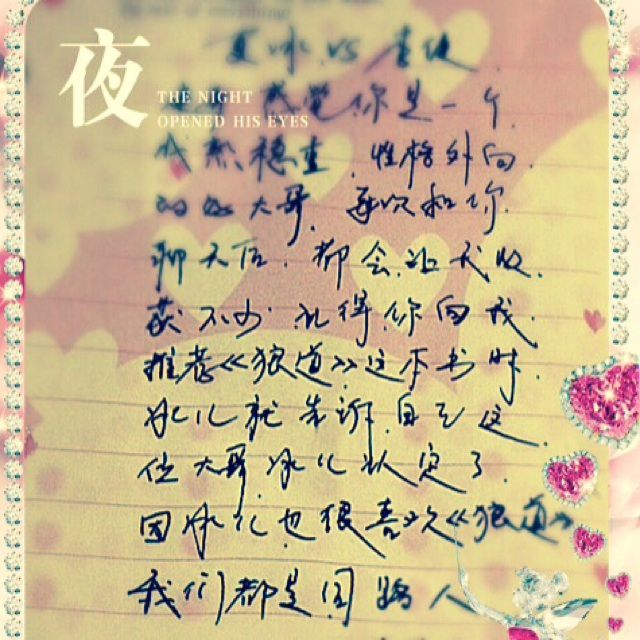 夏冰 VS 李健
夜
THE NIGHT
OPENED HIS EYES
感觉你是一个
成熟稳重，性格外向
的好大哥，每次和你
聊天后，都会让我收
获不少，记得你向我
推荐《狼道》这本书时
冰儿就告诉自己这
位大哥冰儿认定了
因冰儿也很喜欢《狼道》
我们都是同路人